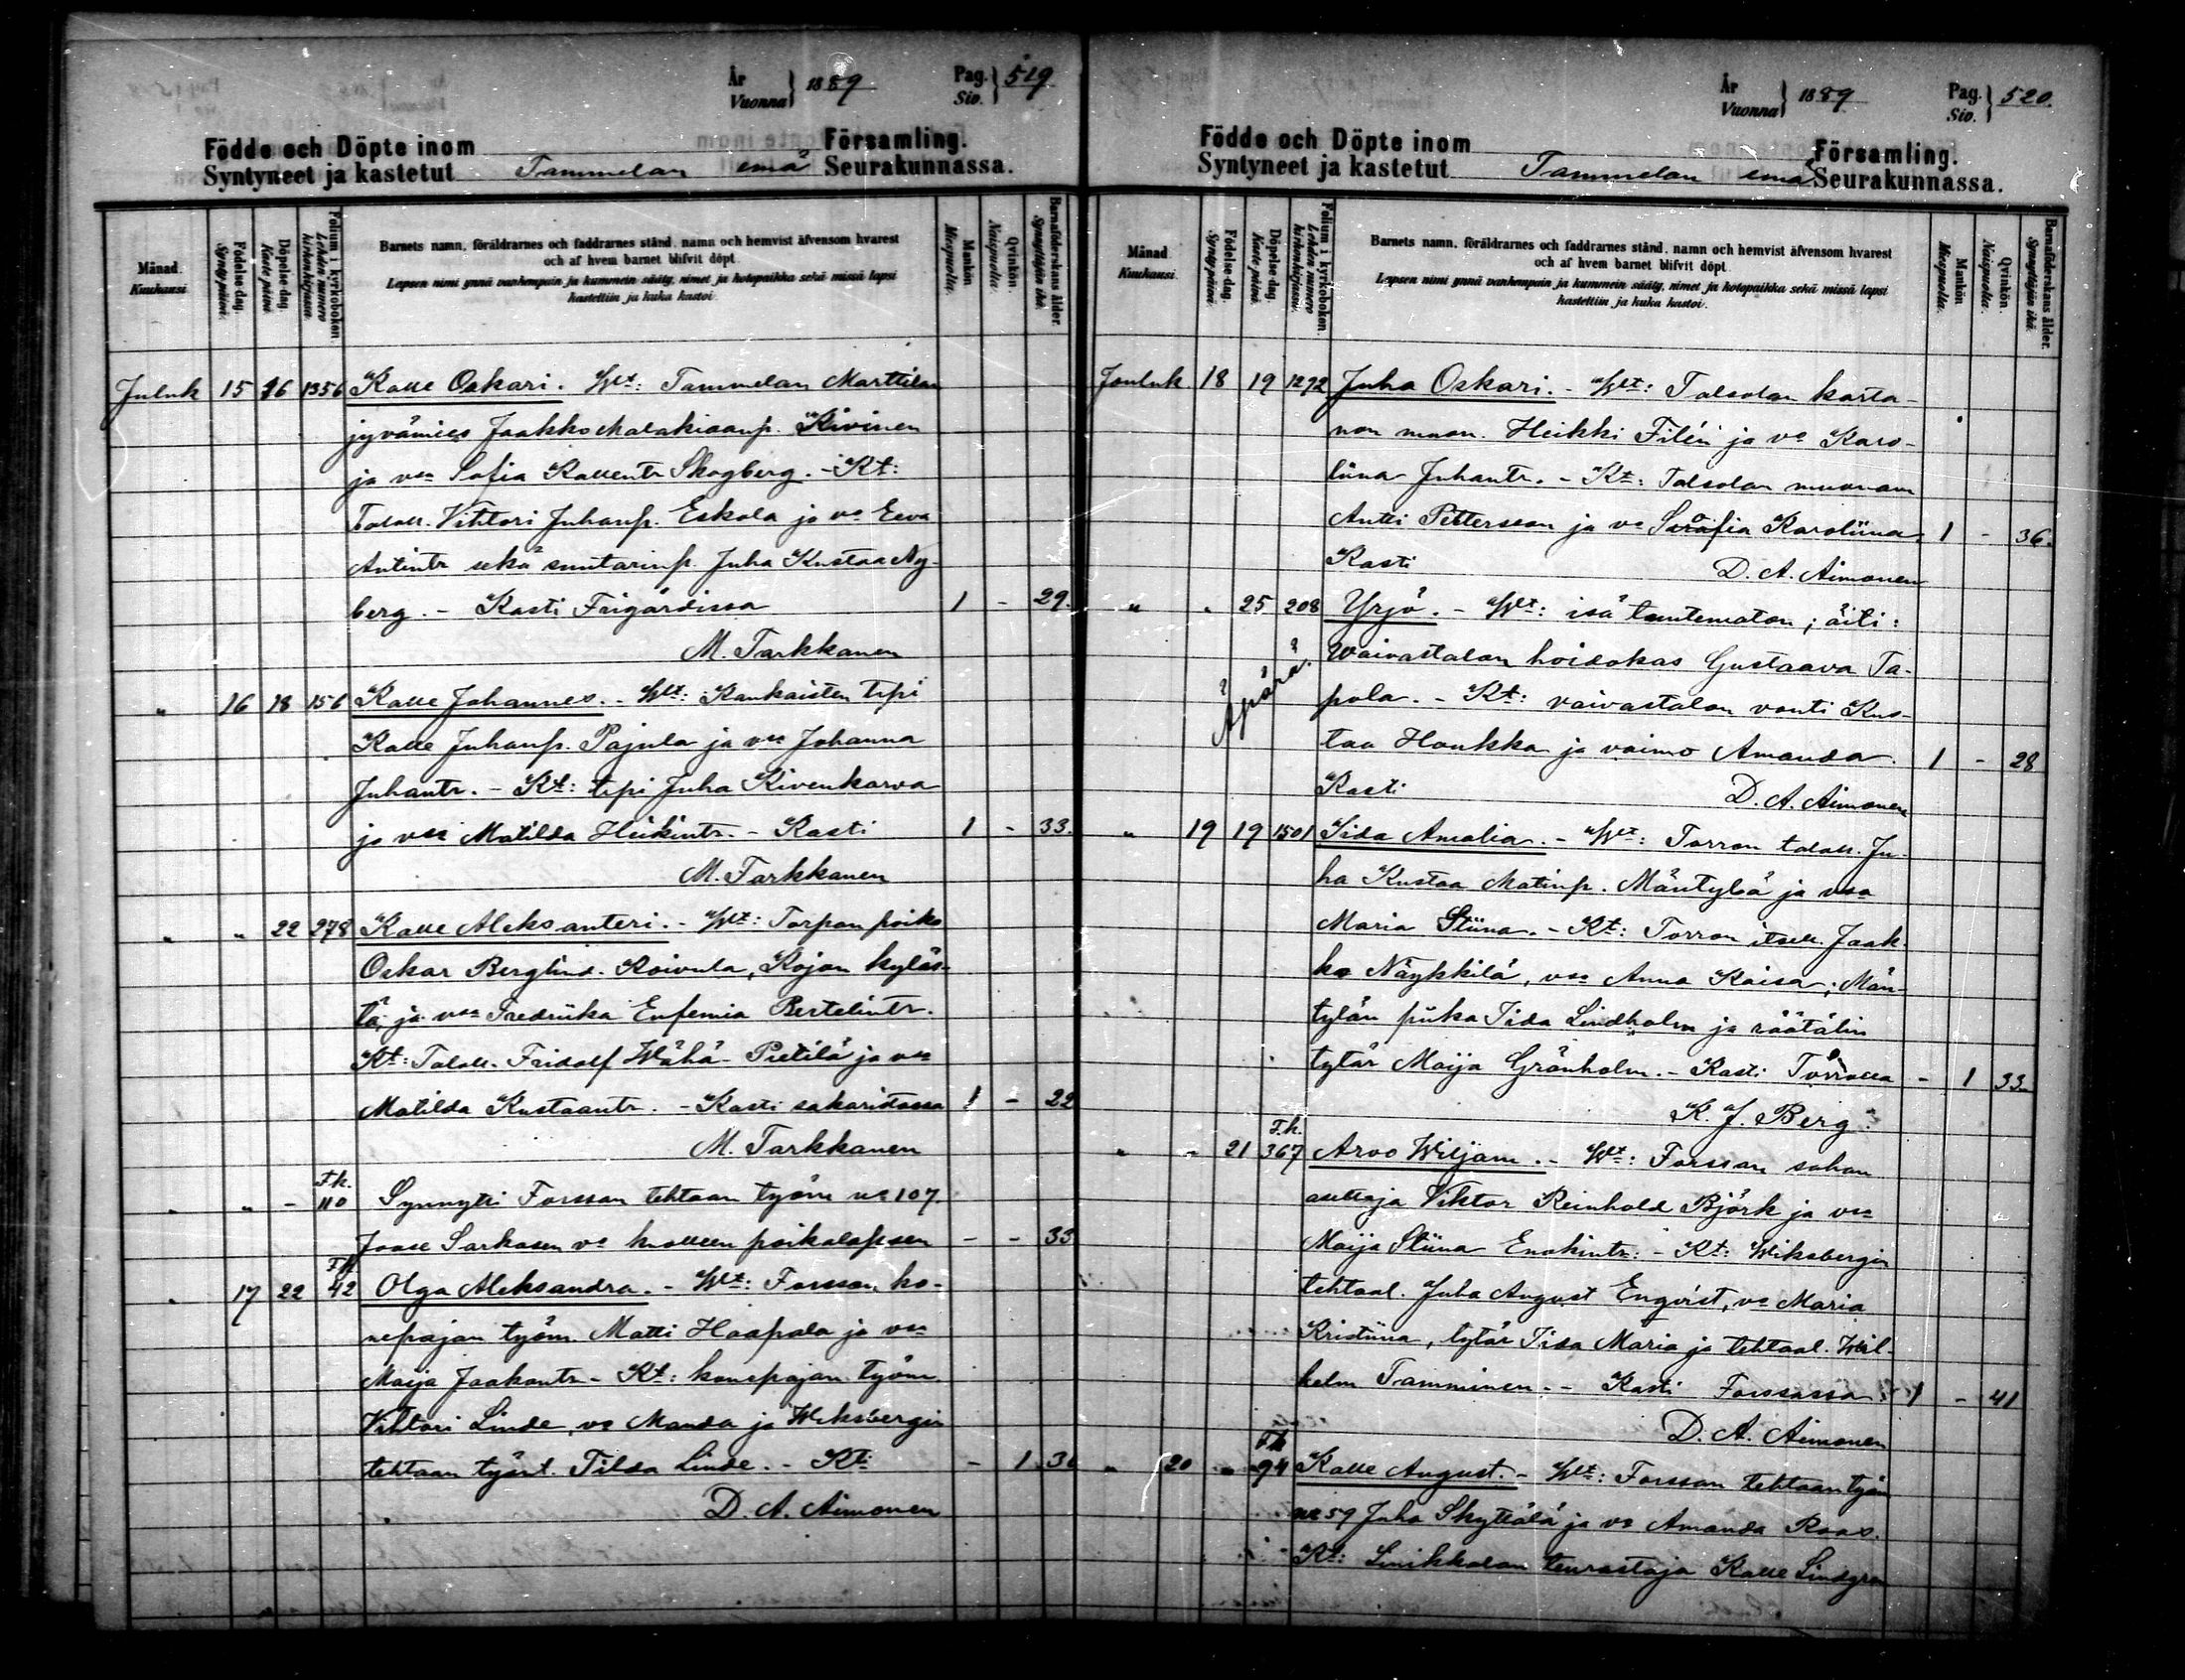 År
Vuonna } 1889 Pag.
Siv. } 519
Födde och Döpte inom Församling.
Syntyneet ja kastetut Tammelan emä Seurakunnassa.
Månad.
Kuukausi.
Födelse-dag.
Synty päivä.
Döpelse-dag.
Kaste päivä.
Folium i kyrkoboken.
Lehden numero kirkonkirjassa.
Barnets namn, föräldrarnes och faddrarnes stånd, namn och hemvist äfvensom hvarest
och af hvem barnet blifvit döpt.
Lapsen nimi ynnä vanhempain ja kummein sääty, nimet ja kotopaikka sekä missä lapsi
kastettiin ja kuka kastoi.
Mankön.
Miespuolta.
Qvinkön.
Naispuolta.
Barnaföderskans ålder.
Synnyttäjän ikä.
Juluk 15 16 1356 Kalle Oskari. Wt: Tammelan Marttilan
jyvämies Jaakko Malakiaanp. Kivinen
ja vsa Sofia Kallentr Skogberg. - Kt:
Taloll. Vihtori Juhanp. Eskola ja va Eeva
Antintr sekä suutarinp. Juha Kustaa Ny-
berg. - Kasti Frigårdissa 1 - 29.
M. Tarkkanen
" 16 18 156 Kalle Johannes. - Wt: Kankaisten trpi
Kalle Juhanp. Pajula ja vsa Johanna
Juhantr. - Kt: trpi Juha Kivenkarva
ja vsa Matilda Heikintr. - Kasti 1 - 33.
M. Tarkkanen
" " 22 278 Kalle Aleksanteri. - Wt: Torpan poika
Oskar Berglind. Koivula, Kojon kyläs-
tä ja vsa Fredriika Eufemia Bertelintr.
Kt: Taloll. Fridolf Wähä-Pietilä ja vsa
Matilda Kustaantr. - Kasti sakaristossa 1 - 22
M. Tarkkanen
" " - F.k. 110 Synnytti Forssan tehtaan työm na 107.
Joose Sarkasen va kuolleen poikalapsen - - 33
" 17 22 F.k. 42 Olga Aleksandra. - Wt: Forssan ko-
nepajan työm. Matti Haapala ja vsa
Maija Jaakontr - Kt: konepajan työm.
Vihtori Linde, va Manda ja Wiksbergin
tehtaan työst. Tilda Linde. - Kt: - 1
D. A. Aimonen
År
Vuonna } 1889 Pag.
Siv. } 520.
Födde och Döpte inom Församling.
Syntyneet ja kastetut Tammelan emä Seurakunnassa.
Månad
Kuukausi.
Födelse-dag.
Synty päivä.
Döpelse-dag.
Kaste päivä.
Folium i kyrkoboken.
Lehden numero kirkonkirjassa.
Barnets namn, föräldrarnes och faddrarnes stånd, namn och hemvist äfvensom hvarest
och af hvem barnet blifvit döpt.
Lapsen nimi ynnä vanhempain ja kummein sääty, nimet ja kotopaikka sekä missä lapsi
kastettiin ja kuka kastoi.
Mankön
Miespuolta.
Qvinkön.
Naispuolta.
Barnaföderskans ålder.
Synnyttäjän ikä.
Jouluk 18 19 1292 Juha Oskari. - Wt: Talsolan karta-
non muon. Heikki Filén ja va Karo-
liina Juhantr. - Kt: Talsolan muonam
Antti Pettersson ja va Sofia Karoliina 1 - 36.
Kasti D. A. Aimonen
" " 25 208 Yrjö. - Wt: isä tuntematon; äiti:
Äpärä. Waivastalon hoidokas Gustaava Ta-
pola. - Kt: vaivastalon vouti Kus-
taa Houkka ja vaimo Amanda. 1 - 28
Kasti D. A. Aimonen
" 19 19 1501 Iida Amalia. - Wt: Torron taloll. Ju-
ha Kustaa Matinp. Mäntylä ja vsa
Maria Stiina. - Kt: Torron itsell. Jaak-
ko Näykkilä, vsa Anna Kaisa; Män-
tylän piika Iida Lindholm ja räätälin
tytär Maija Grönholm. - Kasti Torrolla - 1 33.
K. J. Berg.
" " 21 F.k. 367 Arvo Wiljam. - Wt: Forssan sahan
asettaja Viktor Reinhold Björk ja vsa
Maija Stiina Enokintr: - Kt: Wiksbergin
tehtaal. Juha August Enqvist, va Maria
Kristiina, tytär Iida Maria ja tehtaal. Wil-
helm Tamminen. - Kasti Forssassa. 1 - 41
D. A. Aimonen
" 20 " F.k. 94 Kalle August. - Wt: Forssan tehtaan työm
na 59 Juha Skyttälä ja va Amanda Roos.
Kt: Linikkalan teurastaja Kalle Lindgren